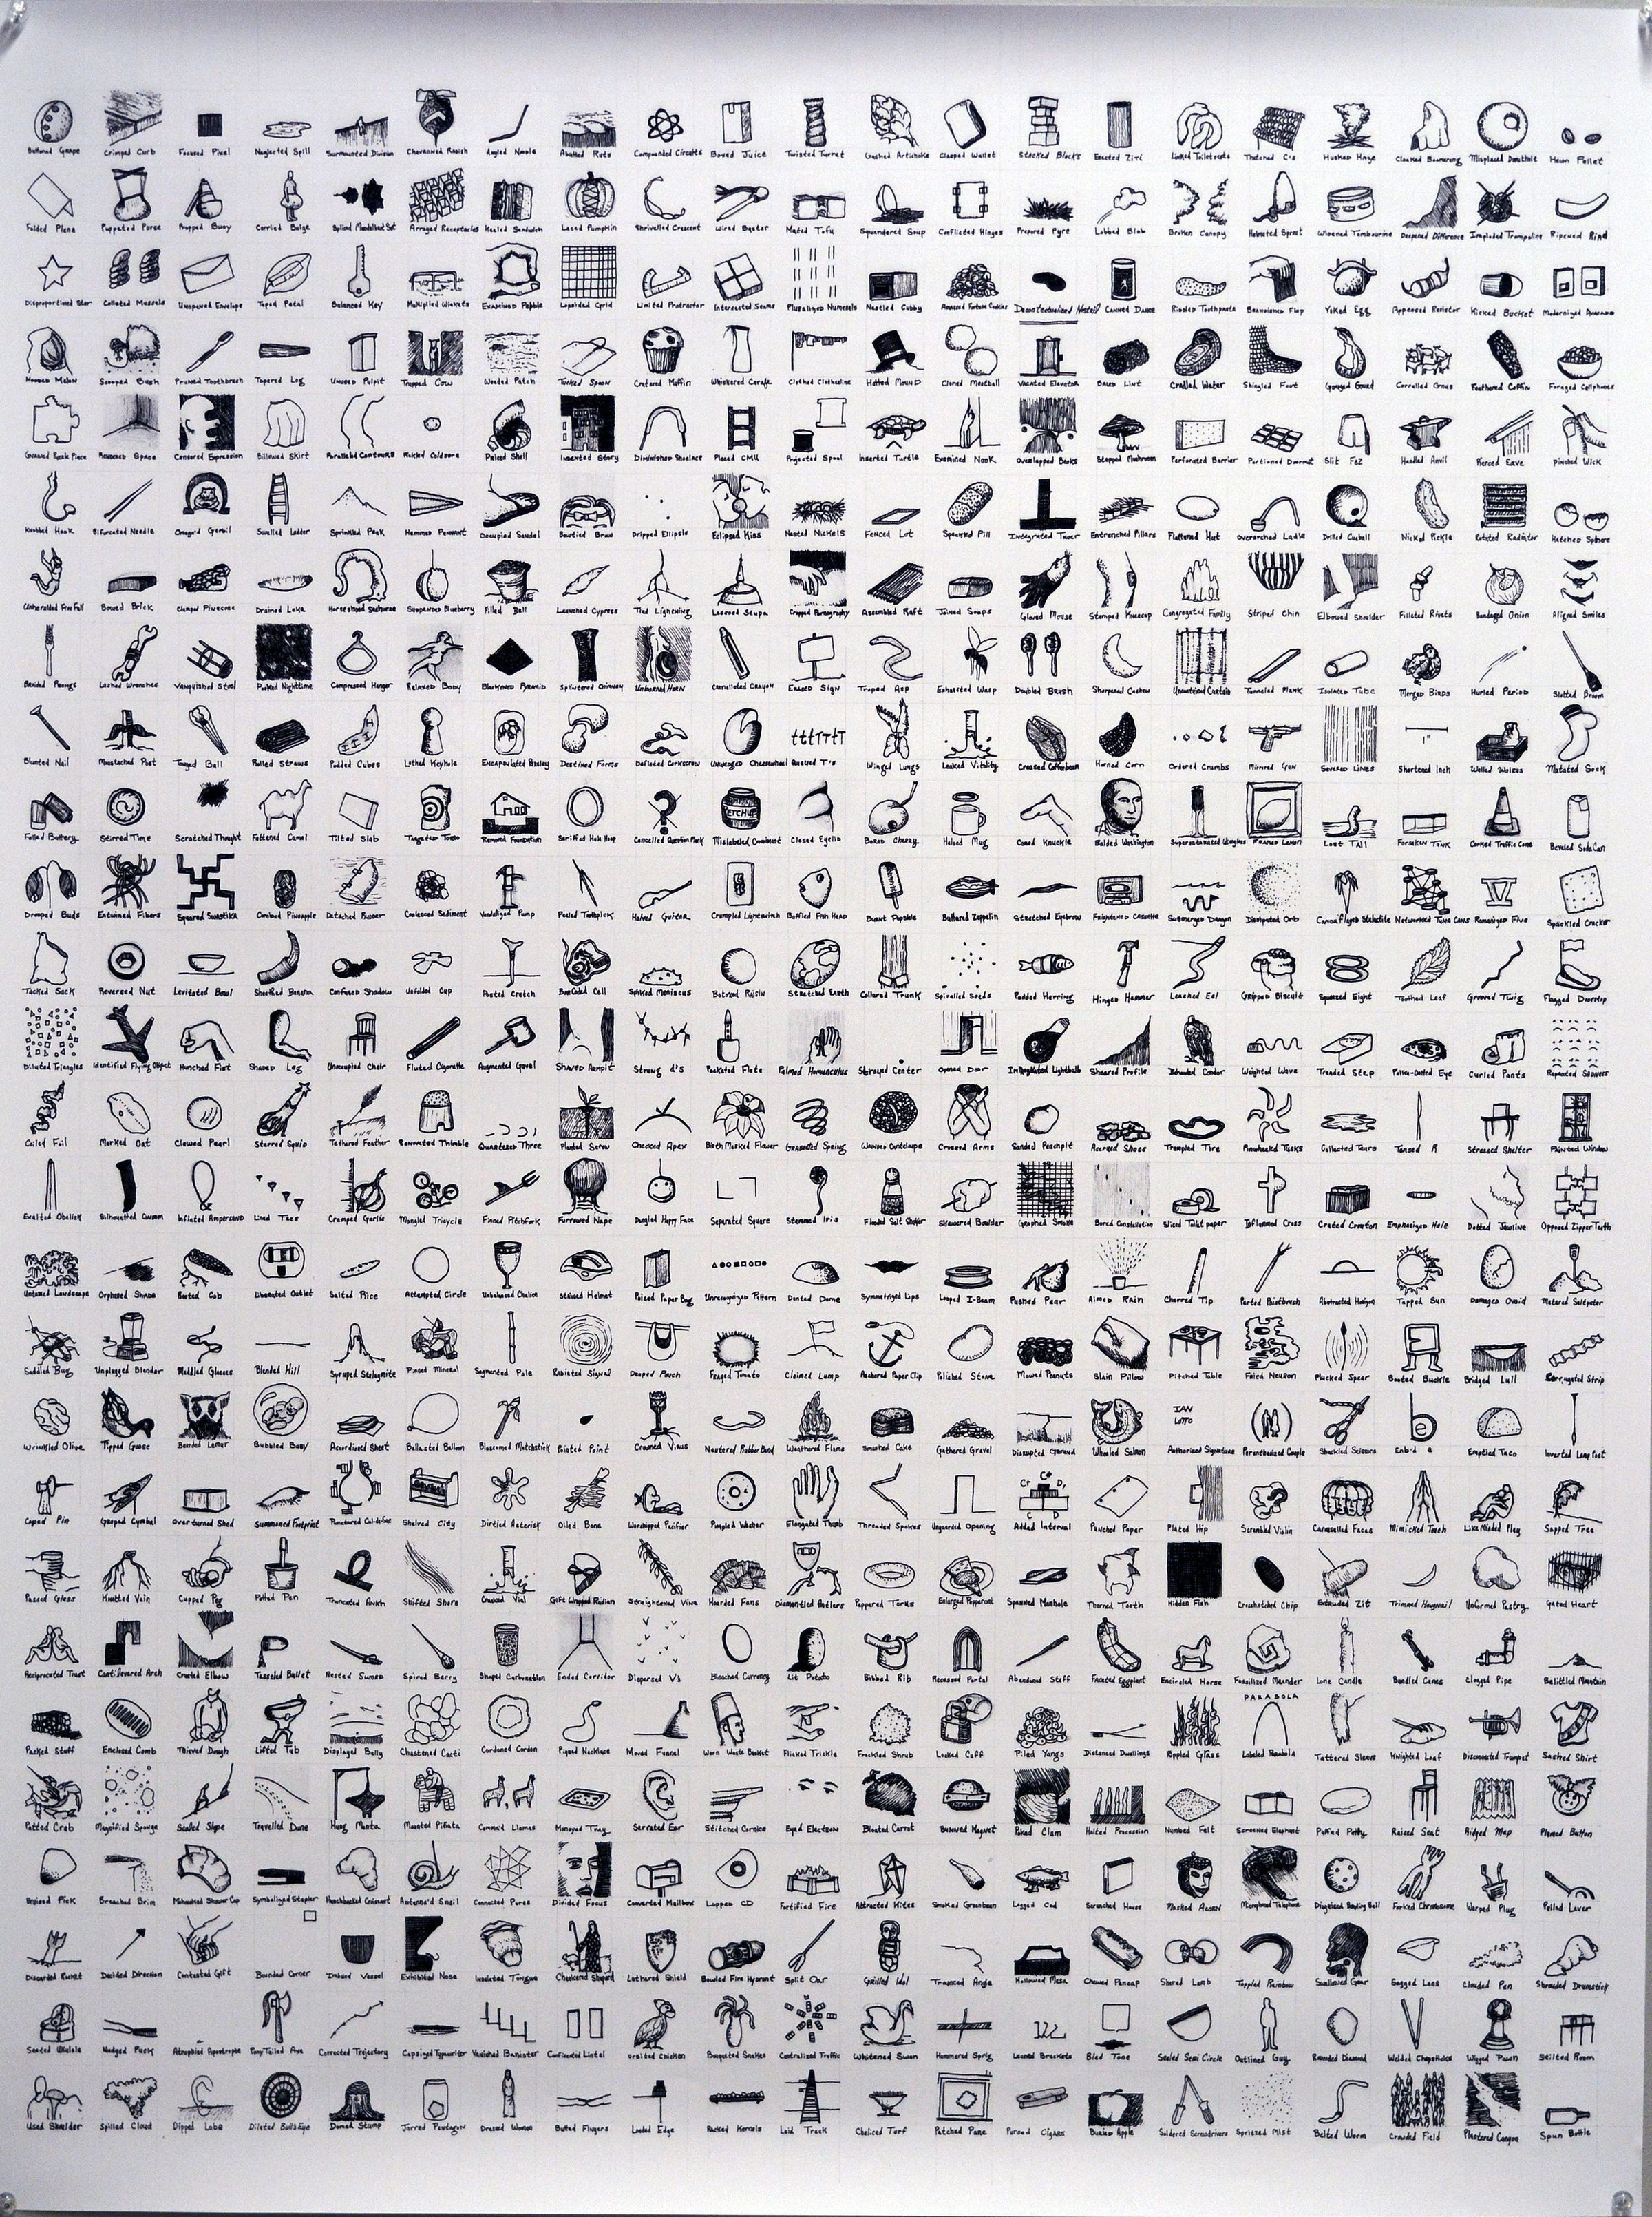 Buttoned Grape Crimped Curb Focused Pixel Neglected Spill Surmounted Division Angled Noodle Abutted Ruts Compounded Circuits Boxed Juice Twisted Turret Clasped Wallet Stacked Blocks Erected Ziti Thatched C's Husked Hinge Cloaked Boomerang Misplaced Donuthole Hewn Pellet
Folded Plane Puppeted Purse Propped Buoy Carried Bulge Arranged Receptacles Healed Sandwich Laced Pumpkin Shrivelled Crescent Wired Mated Tofu Squandered Soup Conflicted Hinges Prepared Pyre Lobbed Blob Broken Canopy Helmeted Sprout Widened Tambourine Deepened Difference Imploded Trampoline Ripened Rind
Disproportioned Star Collated Mussels Unopened Envelope Taped Petal Balanced Key Examined Pebble Lopsided Grid Limited Protractor Intersected Seams Pluralized Numerals Nestled Cubby Amassed Fortune Cookies Canned Dance Rippled Toothpaste Yoked Egg Kicked Bucket
Hooded Melon Scooped Bush Pruned Toothbrush Tapered Log Unused Pulpit Trapped Cow Wooded Patch Forked Spoon Cratered Muffin Whiskered Carafe Clothed Clothesline Hatted Mound Cloned Meatball Vacated Elevator Baked Lint Cradled Water Shingled Foot Gouged Gourd Corralled Feathered Coffin Foraged Cellphones
Censored Expression Billowed Skirt Paralleled Contours Diminished Shoelace Placed CMU Projected Spool Inserted Turtle Examined Nook Overlapped Stepped Mushroom Perforated Barrier Portioned Slit Fez Handled Anvil Pierced Eave Pinched Wick
Bifurcated Needle Swelled Ladder Sprinkled Peak Hemmed Pennant Occupied Sandal Bowtied Braid Dripped Ellipsis Eclipsed Kiss Nested Nickels Fenced Lot Speckled Pill Integrated Tower Entrenched Pillars Flattened Hat Overarched Ladle Drilled Cueball Nicked Pickle Rotated Radiator Hatched Sphere
Unheralded Free Fall Boxed Brick Clumped Pinecone Drained Lake Horseshoed Seahorse Suspended Blueberry Filled Bell Launched Cypress Tied Lightning Cropped Pornography Assembled Raft Joined Soaps Gloved Mouse Stamped Kneecap Congregated Family Striped Chin Elbowed Shoulder Filleted Rivets Bandaged Onion Aligned Smiles
Lashed Wrenches Vanquished Stool Poked Nighttime Compressed Hanger Relaxed Body Blackened Pyramid Splintered Chimney Unburned Horn Crenellated Crayon Erased Sign Exhausted Wasp Doubled Brush Sharpened Cashew Tunneled Plank Isolated Tube Merged Birds Hurled Period Slotted Broom
Blunted Nail Moustached Post Toned Ball Pulled Straws Podded Cubes Lathed Keyhole Encapsulated Paisley Destined Forms Deflated Corkscrew Unwedged Cheesewheel Queued T's Winged Lungs Leaked Vitality Creased Coffeebean Horned Corn Ordered Crumbs Mirrored Gun Severed Lines Shortened Inch Walled Walrus Mutated Sock
Foiled Battery Stirred Time Scratched Thought Fattened Camel Tilted Slab Targeted Torso Removed Foundation Serifed Hula Hoop Cancelled Question Mark Mislabeled Condiment Closed Eyelid Boxed Cherry Haloed Mug Coned Knuckle Balded Washington Framed Lemon Lost Tail Forsaken Tank Corned Traffic Cone Beveled Soda Can
Drooped Buds Entwined Fibers Squared Swastika Combed Pineapple Coalesced Sediment Vandalized Pump Peeled Toothpick Halved Guitar Crumpled Lightswitch Baffled Fish Head Burnt Popsicle Buttered Zeppelin Stretched Eyebrow Frightened Cassette Submerged Dragon Dissipated Orb Camouflaged Stalactite Networked Tuna Cans Romanized Five Spackled Cracker
Tacked Sack Reversed Nut Levitated Bowl Sheathed Banana Confused Shadow Unfolded Cup Posted Crotch Barcoded Cell Spiked Meniscus Botoxed Raisin Stretched Earth Collared Trunk Spiralled Seeds Padded Herring Hinged Hammer Leashed Eel Gripped Biscuit Squeezed Eight Toothed Leaf Grooved Twig Flagged Doorstop
Diluted Triangles Identified Flying Object Hunched Fist Shaded Leg Unoccupied Chair Fluted Cigarette Augmented Gavel Shaved Armpit Strung d's Pocketed Flute Palmed Homunculus Strayed Center Opened Door Sheared Profile Weighted Wave Treaded Step Polka-Dotted Eye Curled Pants Repeated Sadness
Coiled Foil Marked Oat Clawed Pearl Starred Squid Tethered Feather Renovated Thimble Quartered Three Planted Screw Checked Apex Birth Marked Flower Granulated Spring Crossed Arms Sanded Peachpit Accrued Shoes Trampled Tire Pinwheeled Tusks Collected Tears Tensed R Stressed Shelter Painted Window
Exalted Obelisk Inflated Ampersand Lined Tees Cramped Garlic Mangled Tricycle Finned Pitchfork Furrowed Nape Dangled Happy Face Separated Square Stemmed Iris Flooded Salt Shaker Skewered Boulder Graphed Smoke Bored Constellation Sliced Toilet paper Inflamed Cross Crated Crouton Emphasized Hole Dotted Jawline Opposed Zipper Teeth
Untamed Landscape Orphaned Shade Rooted Cob Liberated Outlet Salted Rice Attempted Circle Unbalanced Chalice Sliced Helmet Poised Paper Bag Unrecognized Pattern Dented Dome Symmetrized Lips Looped I-Beam Pushed Pear Aimed Rain Charred Tip Parted Paintbrush Abstracted Horizon Tapped Sun Damaged Ovoid Metered Saltpeter
Saddled Bug Unplugged Blender Meddled Glasses Blended Hill Syruped Stalagmite Prized Mineral Segmented Pole Radiated Signal Draped Pouch Frayed Tomato Claimed Lump Anchored Paper Clip Polished Stone Mowed Peanuts Slain Pillow Pitched Table Foiled Neuron Plucked Spear Booted Buckle Bridged Lull Corrugated Strip
Wrinkled Olive Tipped Goose Bearded Lemur Bubbled Baby Accordioned Sheet Ballasted Balloon Blossomed Matchstick Pointed Point Crowned Virus Neutered Rubber Band Weathered Flame Smashed Cake Gathered Gravel Disrupted Ground Wheeled Salmon Authorized Signature Parenthesized Couple Shackled Scissors Emptied Taco Inverted Lamp Post
IAN
Caped Pin Gasped Cymbal Overturned Shed Summoned Footprint Shelved City Dirtied Asterisk Oiled Bone Worshipped Pacifier Pimpled Washer Elongated Thumb Threaded Spokes Unguarded Opening Added Interval Pouched Paper Plated Hip Scrambled Violin Carouselled Faces Mimicked Touch Like Minded Play Sapped Tree
Passed Glass Knotted Vein Cupped Peg Potted Pen Truncated Ankh Shifted Shore Crushed Vial Gift Wrapped Radian Straightened Vine Hoarded Fans Dismantled Antlers Peppered Torus Enlarged Pepperoni Spawned Manhole Thorned Tooth Hidden Fish Crosshatched Chip Extruded Zit Trimmed Hangnail Unformed Pastry Gated Heart
Reciprocated Trust Cantilevered Arch Crooked Elbow Tasseled Ballet Rested Sword Spired Berry Shaped Carbonation Ended Corridor Dispersed V's Bleached Currency Lit Potato Bibbed Rib Recessed Portal Abandoned Staff Faceted Eggplant Encircled Horse Fossilized Meander Lone Candle Bundled Canes Clogged Pipe Belittled Mountain
PARABOLA
Packed Stuff Enclosed Comb Thieved Dough Lifted Tub Displayed Belly Chastened Cacti Cordoned Cordon Piqued Necklace Moved Funnel Worn Waste Basket Flicked Trickle Freckled Shrub Locked Cuff Piled Yarns Distanced Dwellings Rippled Glass Labeled Parabola Tattered Sleeve Knighted Loaf Disconnected Trumpet Sashed Shirt
Potted Crab Magnified Sponge Scaled Slope Travelled Dune Hung Manta Mounted Piñata Comma'd Llamas Moneyed Tray Serrated Ear Stitched Cornice Eyed Electron Bloated Carrot Poked Clam Halted Procession Numbed Felt Screened Elephant Puffed Patty Raised Seat Ridged Map Planed Button
Unused Pick Breached Brim Symbolized Stapler Hunchbacked Croissant Antenna'd Snail Connected Pores Divided Focus Converted Mailbox Lapped CD Fortified Fire Attracted Kites Smoked Greenbean Logged Cod Scrunched House Masked Acorn Disguised Bowling Ball Forked Chromosome Warped Plug Pulled Lever
Discarded Pocket Decided Direction Contested Gift Bounded Corner Imbued Vessel Exhibited Nose Insulated Tongue Checkered Shepard Leathered Shield Boweled Fire Hydrant Split Oar Grizzled Idol Traced Angle Hollowed Mesa Chewed Pencap Shared Lamb Toppled Rainbow Swallowed Gear Sagged Lens Clouded Pen Shrouded Drumstick
Seated Ukulele Nudged Puck Atrophied Apostrophe Pony Tailed Axe Corrected Trajectory Capsized Typewriter Vanished Banister Confiscated Lintel Orbited Chicken Bouqueted Snakes Centralized Traffic Whitened Swan Hammered Sprig Leaned Brackets Bled Tone Sealed Semi Circle Outlined Guy Rounded Diamond Welded Chopsticks Wigged Pawn Stilted Room
Used Shoulder Spilled Cloud Dipped Lobe Dilated Bullseye Domed Stump Jarred Pentagon Draped Woman Butted Fingers Loaded Edge Racked Kernels Laid Track Chaliced Turf Patched Pane Pursed Cigars Busted Apple Soldered Screwdrivers Spritzed Mist Belted Worm Crowded Field Plastered Canyon Spun Bottle